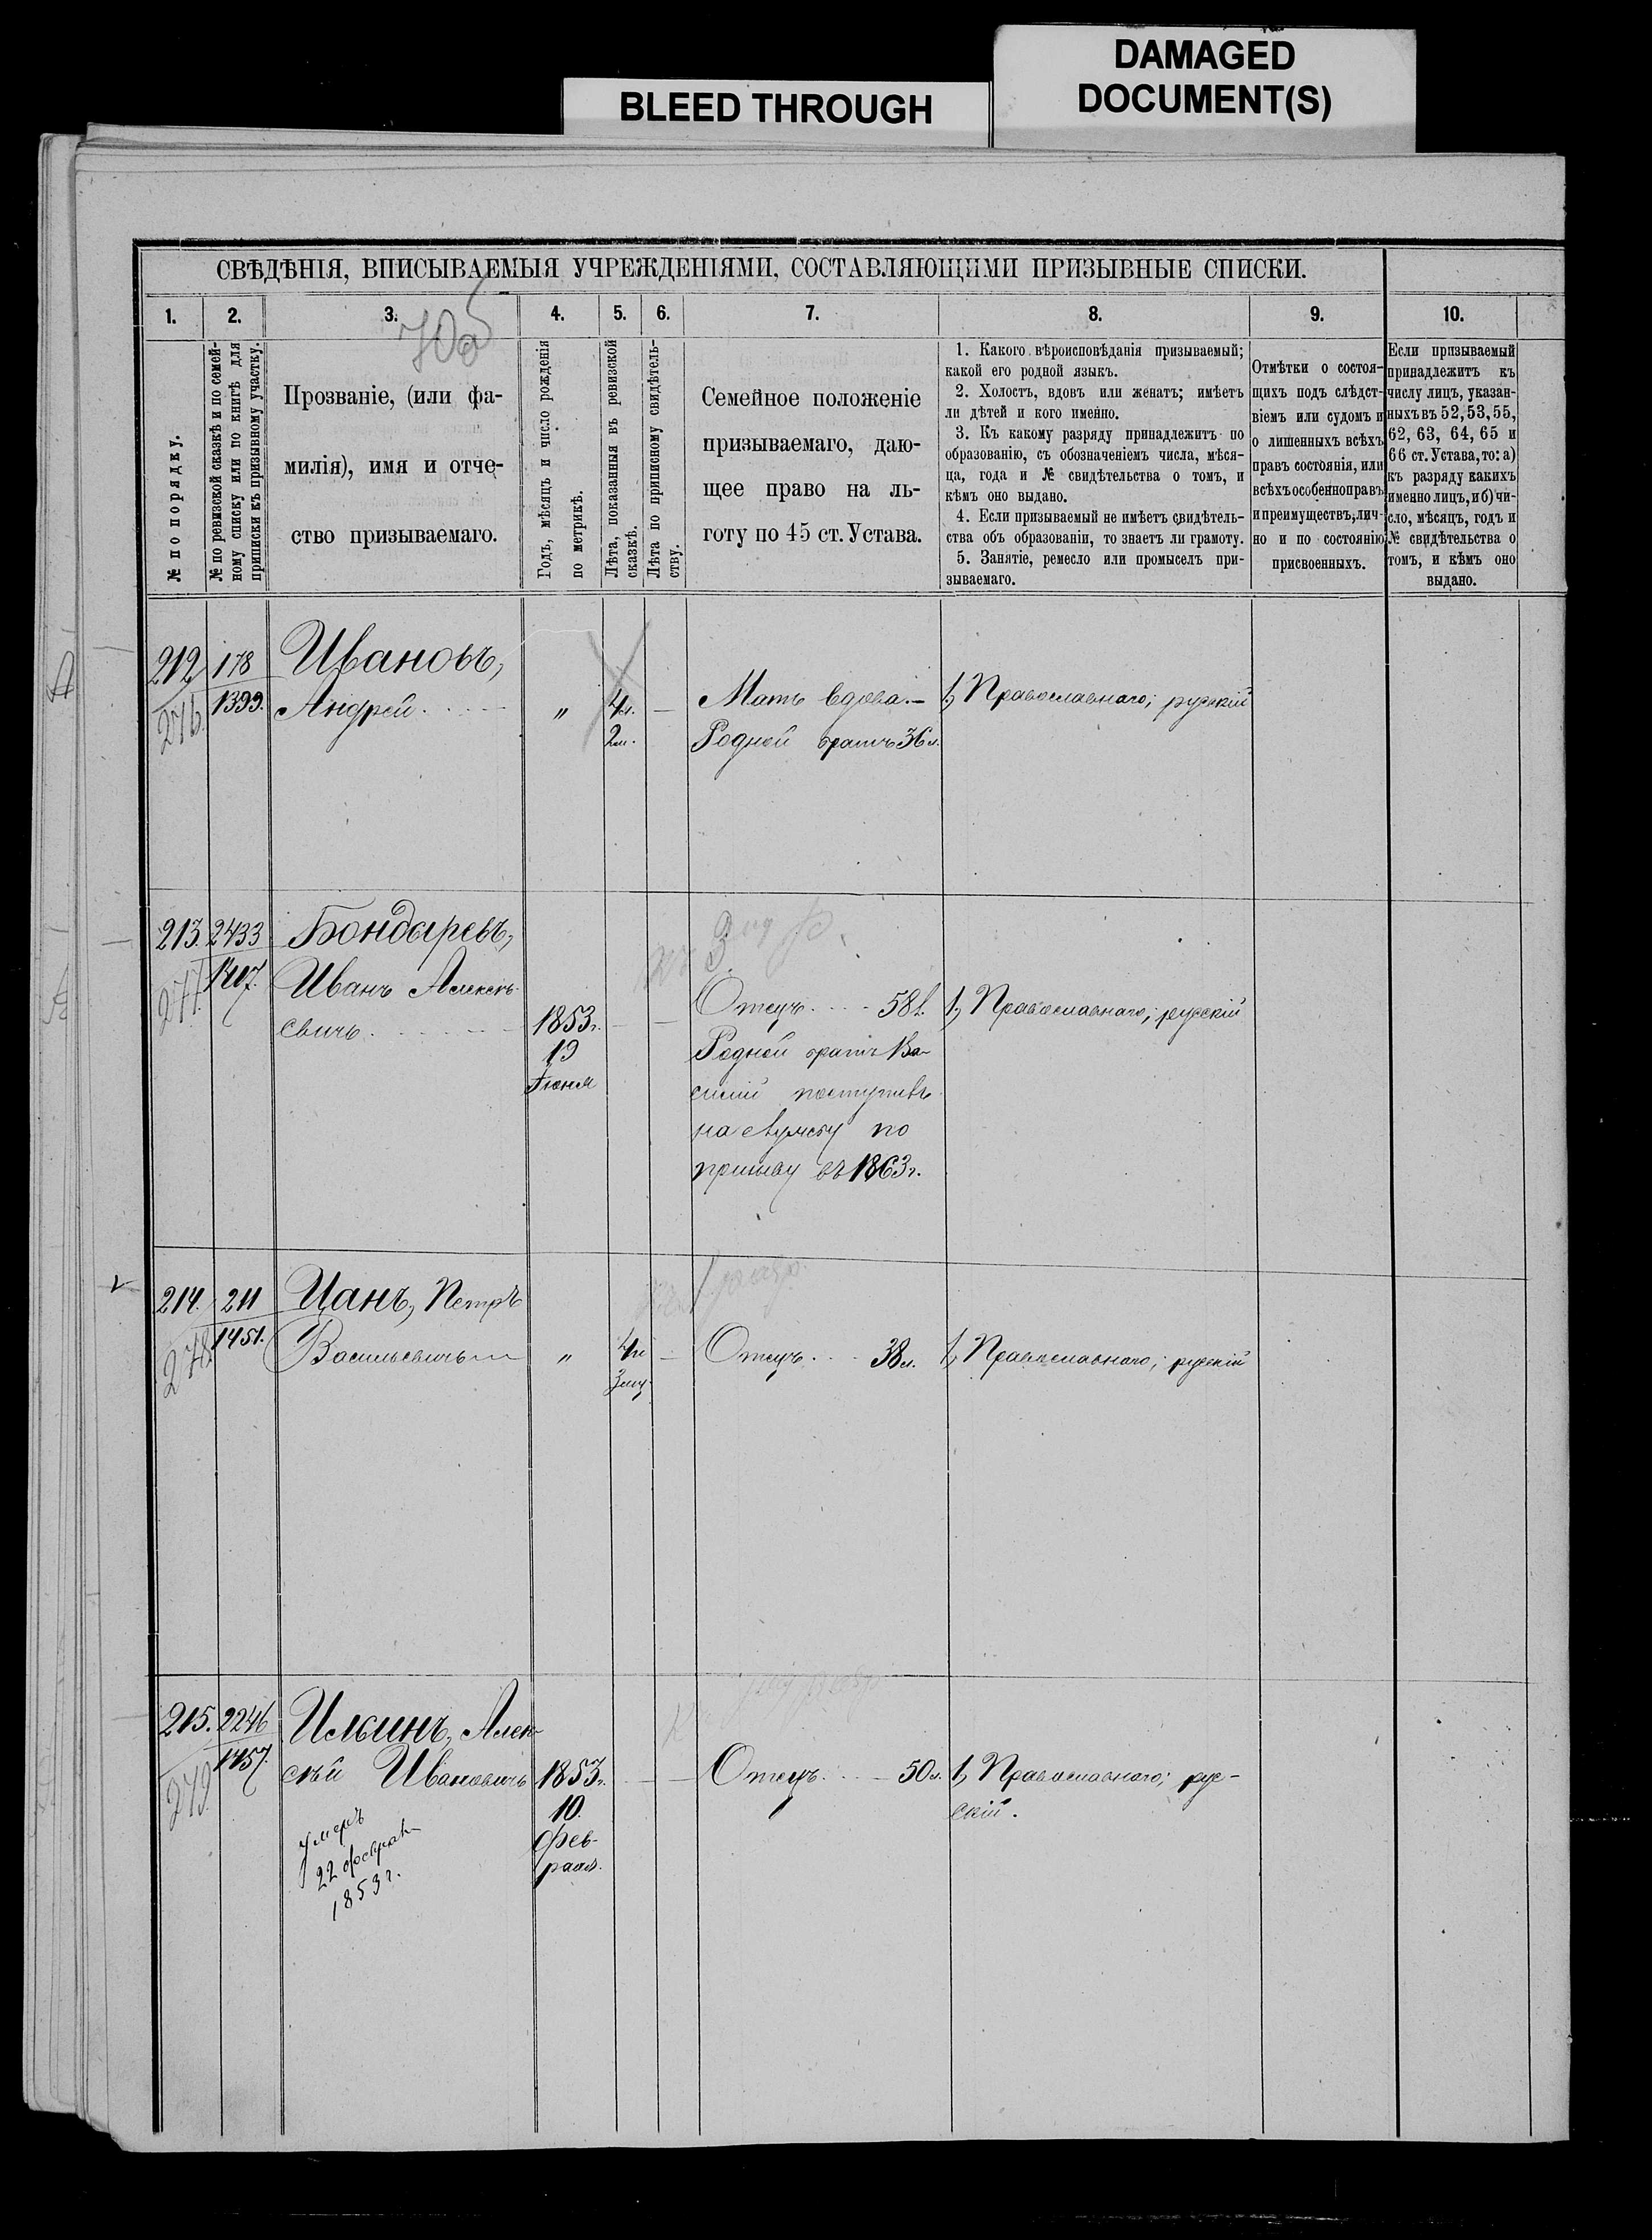 BLEED THROUGH
DAMAGED
DOCUMENT(S)
СВѢДѢНІЯ, ВПИСЫВАЕМЫЯ УЧРЕЖДЕНІЯМИ, СОСТАВЛЯЮЩИМИ ПРИЗЫВНЫЕ СПИСКИ.
1.
2.
3.
4.
5.
6.
7.
8.
9.
10.
№ по порядку.
№ по ревизской сказкѣ и по семей-
ному списку или по книгѣ для
приписки къ призывному участку.
Прозваніе, (или фа-
милія), имя и отче-
ство призываемаго.
Годъ, мѣсяцъ и число рожденія
по метрикѣ.
Лѣта, показанныя въ ревизской
сказкѣ.
Лѣта по приписному свидѣтель-
ству.
Семейное положеніе
призываемаго, даю-
щее право на ль-
готу по 45 ст. Устава.
1. Какого вѣроисповѣданія призываемый;
какой его родной языкъ.
2. Холостъ, вдовъ или женатъ; имѣетъ
ли дѣтей и кого именно.
3. Къ какому разряду принадлежитъ по
образованію, съ обозначеніемъ числа, мѣся-
ца, года и № свидѣтельства о томъ, и
кѣмъ оно выдано.
4. Если призываемый не имѣетъ свидѣтель-
ства объ образованіи, то знаетъ ли грамоту.
5. Занятіе, ремесло или промыселъ при-
зываемаго.
Отмѣтки о состоя-
щихъ подъ слѣдст-
віемъ или судомъ и
о лишенныхъ всѣхъ
правъ состоянія, или
всѣхъ особенно правъ
и преимуществъ, лич-
но и по состоянію
присвоенныхъ.
Если призываемый
принадлежитъ къ
числу лицъ, указан-
ныхъ въ 52, 53, 55,
62, 63, 64, 65 и
66 ст. Устава, то: а)
къ разряду какихъ
именно лицъ, и б) чи-
сло, мѣсяцъ, годъ и
№ свидѣтельства о
томъ, и кѣмъ оно
выдано.
212 178 Ивановъ,
276. 1399. Андрей " 4л. — Мать вдова. — 1, Православнаго; русскій
2м. Родной братъ 36 л.
213. 2433 Бондаревъ,
277. 1407. Иванъ Алексѣ-
евичъ 1853г. — — Отецъ 58 л. 1, Православнаго; русскій
19 Родной братъ Ва-
Іюня силій поступивъ
на службу по
призыву въ 1863г.
214. 211 Цанъ, Петръ
278. 1451. Васильевичъ " 4л — Отецъ 38 л. 1, Православнаго; русскій
215. 2246 Илкинъ, Алек-
279. 1457. сѣй Ивановичъ 1853г. — — Отецъ 50 л. 1, Православнаго; рус-
10. скій.
фев-
раля.
умеръ
22 февраля
1853 г.